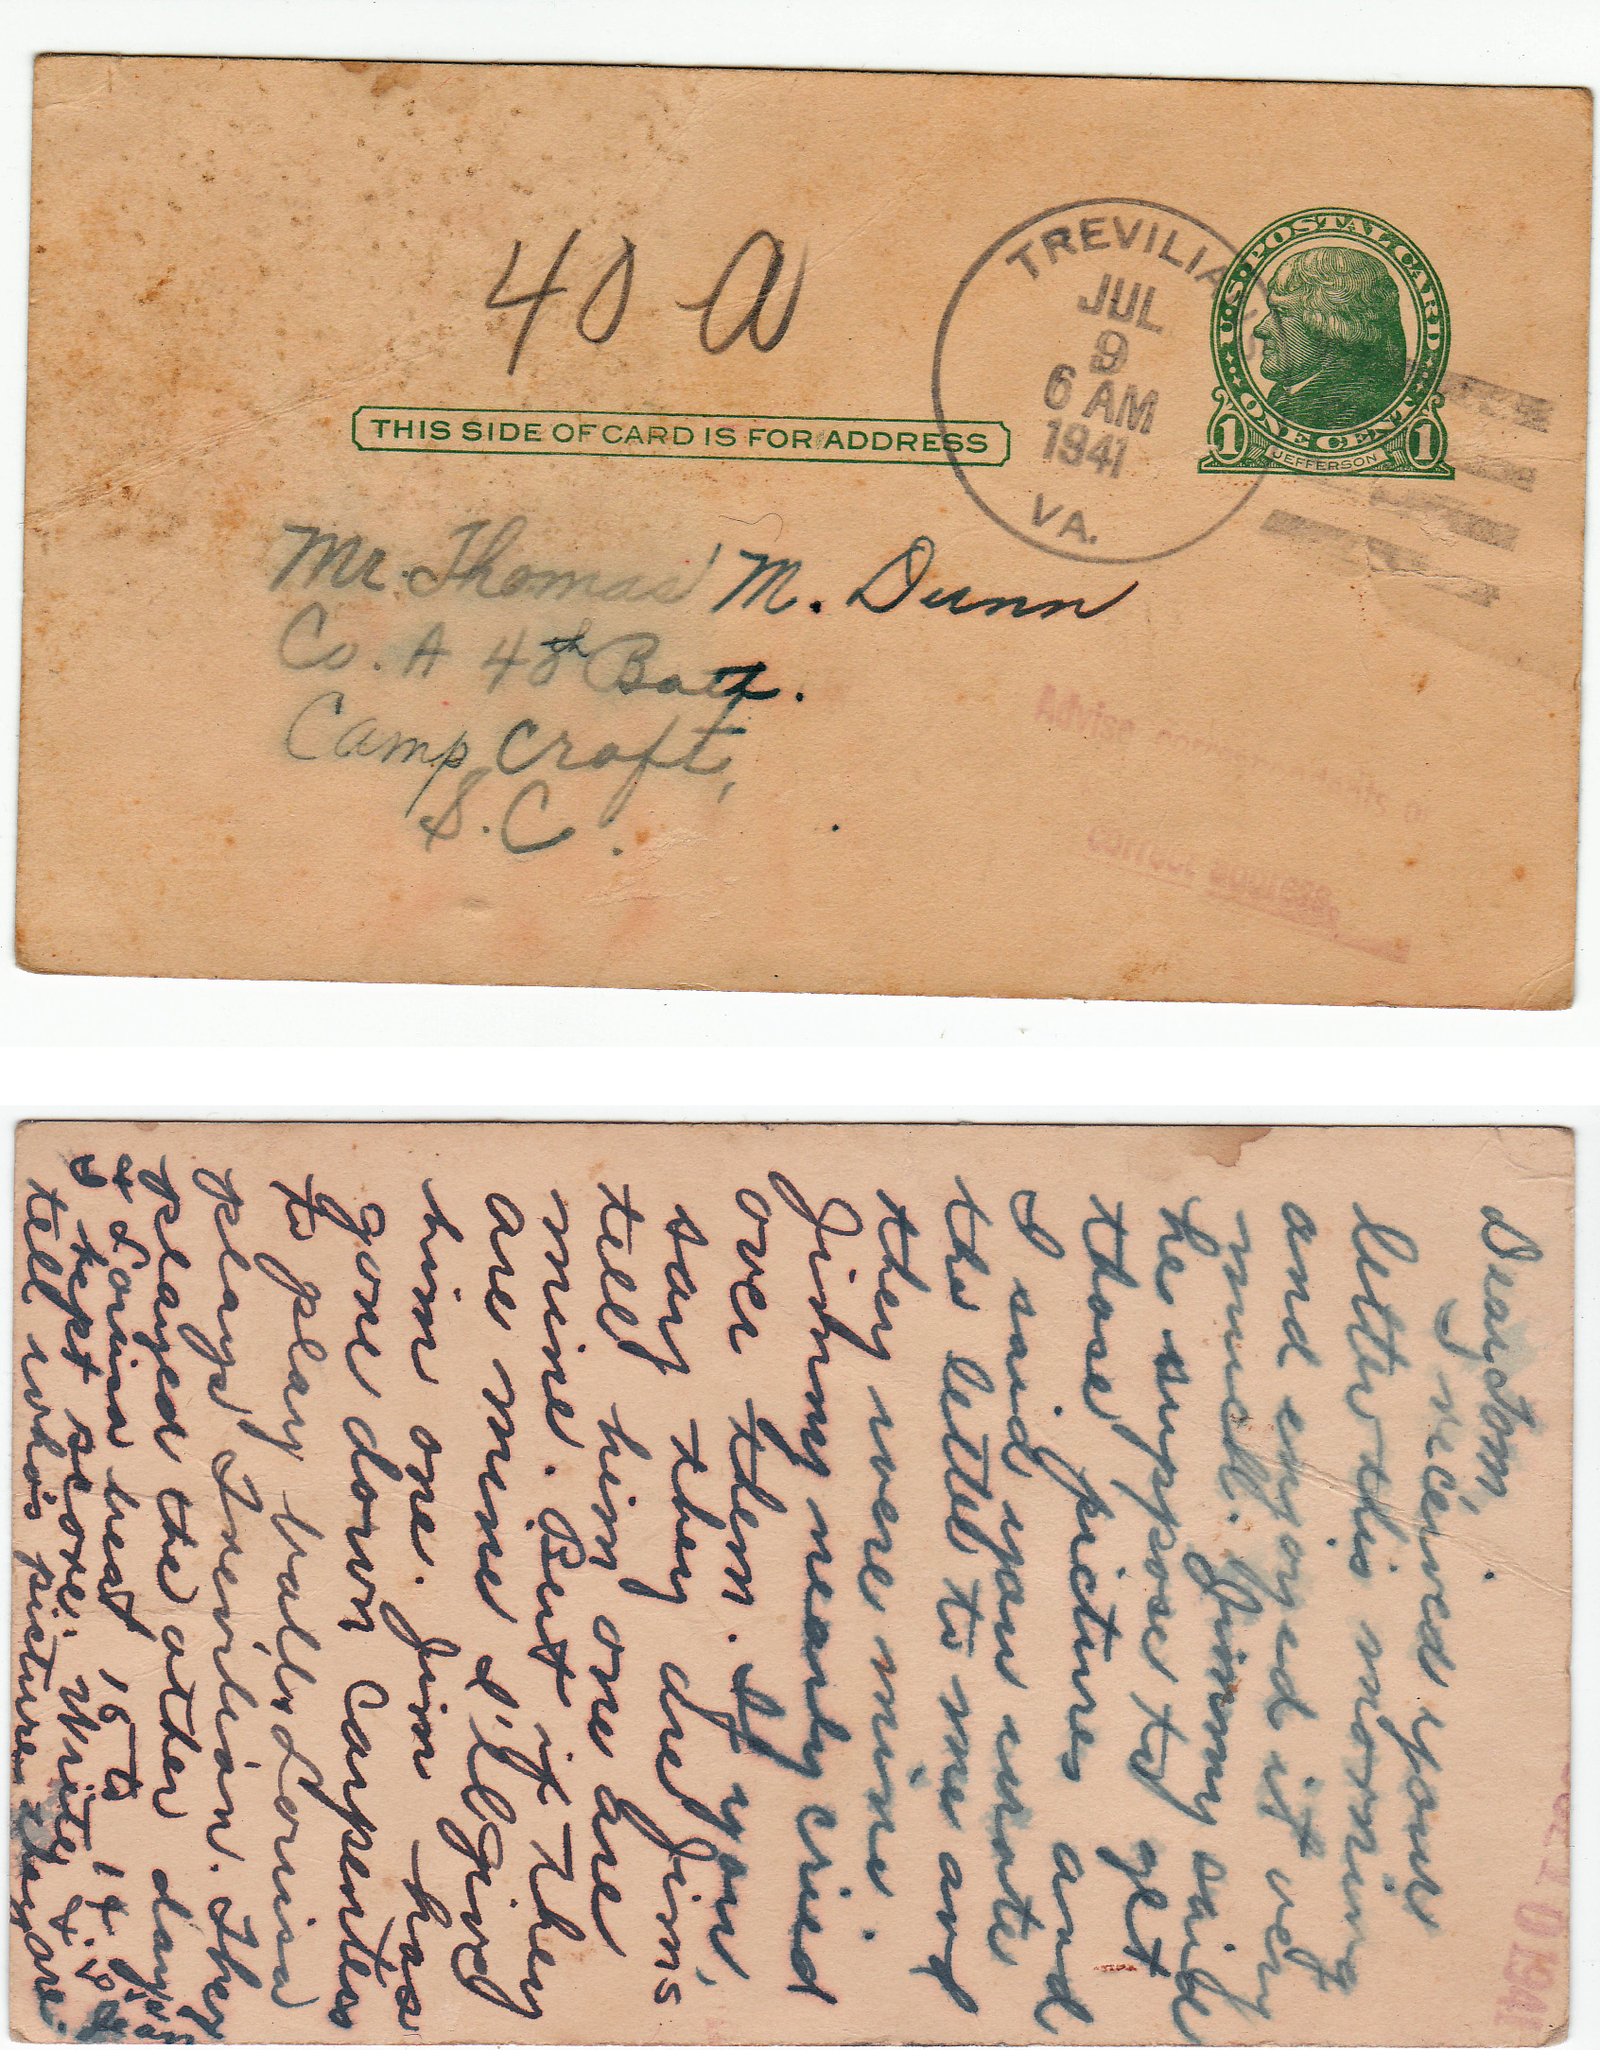 40 A
TREVILIANS
JUL
9
6 AM
1941
VA.
U.S. POSTAL CARD
ONE CENT
1 JEFFERSON 1
THIS SIDE OF CARD IS FOR ADDRESS
Mr. Thomas M. Dunn
Co. A 40th Batt.
Camp Croft,
S.C.
Advise correspondents of
correct address.
Dear Tom,
I recived your
letter this morning
and enjoyed it very
much. Jimmy said
he suppose to get
those pictures and
I said you wrote
the letter to me and
they were mine.
Jimmy nearly cried
over them. If you,
say they are Jims
tell him one are
mine. But if they
are mine I'll give
him one. Jim has
gone down Carpenters
to play ball. Lorisa
plays Trevilian. They
played the other day
& Lorisa beat 15 to 14
I kept score. Write &
tell who's picture they are.
10 1941